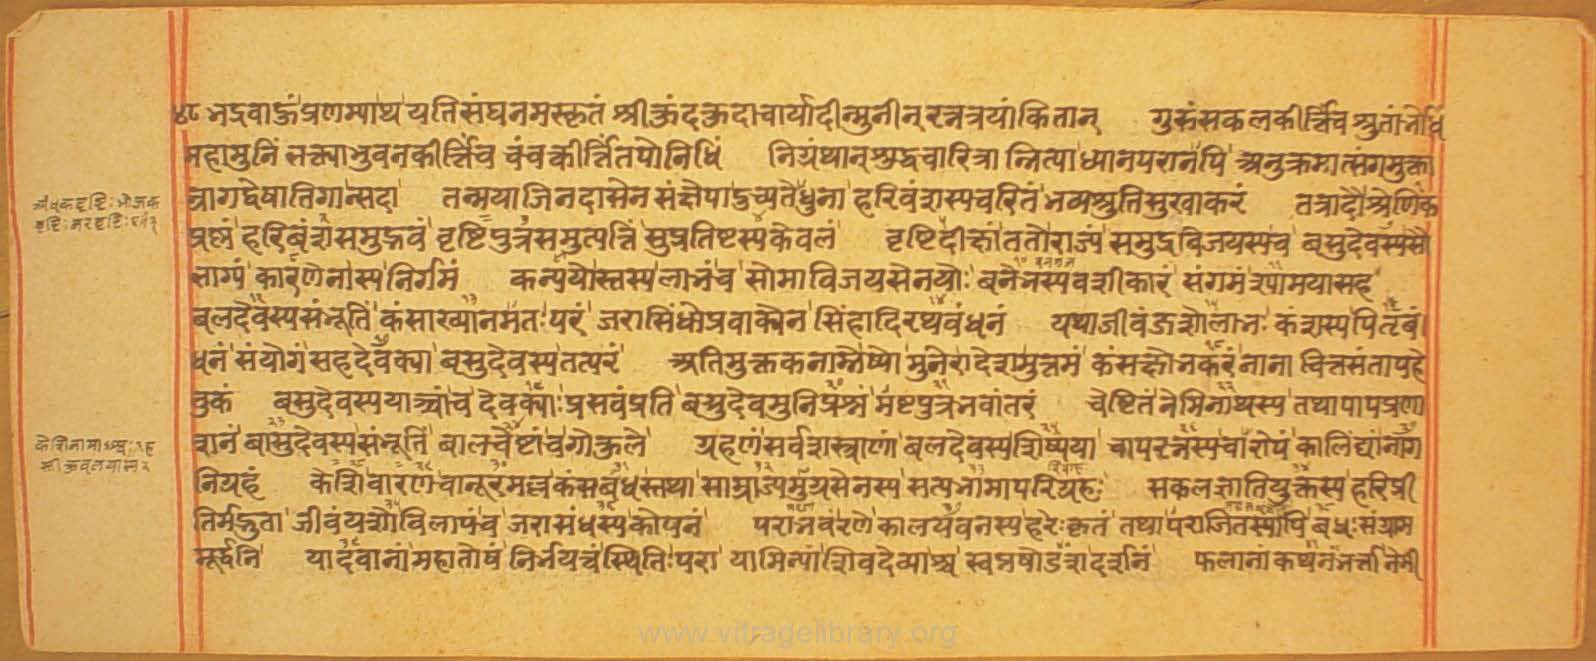 ४८ भद्रवाऊंप्रणम्याथ यतिसंघनमस्कृतं श्रीकुंदकुदाचार्यादीन्मुनीन् रत्नत्रयांकितान् गुरुंसकलकीर्त्तिंच श्रुतांभोधिं
महामुनिं भक्त्याभुवनकीर्त्तिंच चंचत्कीर्त्तिंतपोनिधिं निग्रंथान् शुद्धचारित्रा न्नित्याध्यानपरानपि अनुक्रमात्संगमुक्ता
न्रागद्वेषातिगान्सदा तन्मयाजिनदासेन संक्षेपाडच्यतेधुना हरिवंशस्यचरितं भव्यश्रुतिसुखाकरं तत्रादौश्रेणिक
अंधकदृष्टिः भोजक
दृष्टिः नरदृष्टिः
प्रष्ण्यं हरिवंशसमुद्भवं वृष्टिपुत्रसमुत्पत्तिं सुप्रतिष्टस्यकेवलं वृष्टिदीक्षांततोराज्यं समुद्रविजयस्यच वसुदेवस्यसौ
भाग्यं कारणेनास्य निर्गमं कन्ययोस्तस्यलाभंच सोमाविजयसेनयोः वनेभस्यवशीकारं संगमंश्यामयासह
बलदेवस्यसंभूतिं कंसाख्यानमतःपरं जरासिंधोप्रवाक्येन सिंहादिरथबंधनं यथाजीवंजशोलाभः कंशस्यपितृबं
धनं संयोगंसहदेवक्या वसुदेवस्यतत्परं अतिमुक्तकनाम्नैष्यो मुनेरादेशमुत्तमं कंसक्षोभकरंनाना चित्तसंतापहे
तुकं वसुदेवस्ययाञ्चांच देवक्याःप्रसवंप्रति वसुदेवमुनिप्रश्नं मष्टपुत्रभवांतरं चेष्टितंनेमिनाथस्य तथापापप्रणा
शनं वासुदेवस्यसंभूतिं बालचेष्टांचगोकुले ग्रहणंसर्वशास्त्राणां बलदेवस्यशिष्यया चापरत्नस्यचारोपं कालिंद्यांनाग
निग्रहं केशिवारणचानूरमल्लकंसवधस्तथा साम्राज्यमुग्रसेनस्य सत्यभामापरिग्रहः सकलज्ञातियुक्तस्य हरिप्री
तिर्मद्भुता जीवंयशोविलापंच जरासंधस्यकोपनं पराभवंरणे कालयवनस्यहरेःकृतं तथापराजितस्यापि वधःसंग्राम
मूर्द्धनि यादवानांमहातोषं निर्भयत्वंस्थितिःपरा यामिन्यांशिवदेव्याश्च स्वप्नषोडशदर्शनं फलानांकथनंभर्त्ता नेमी
www.vitragelibrary.org